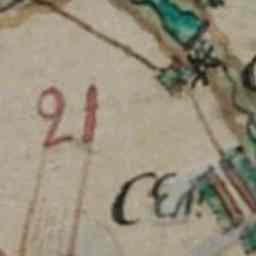 21
Cen.